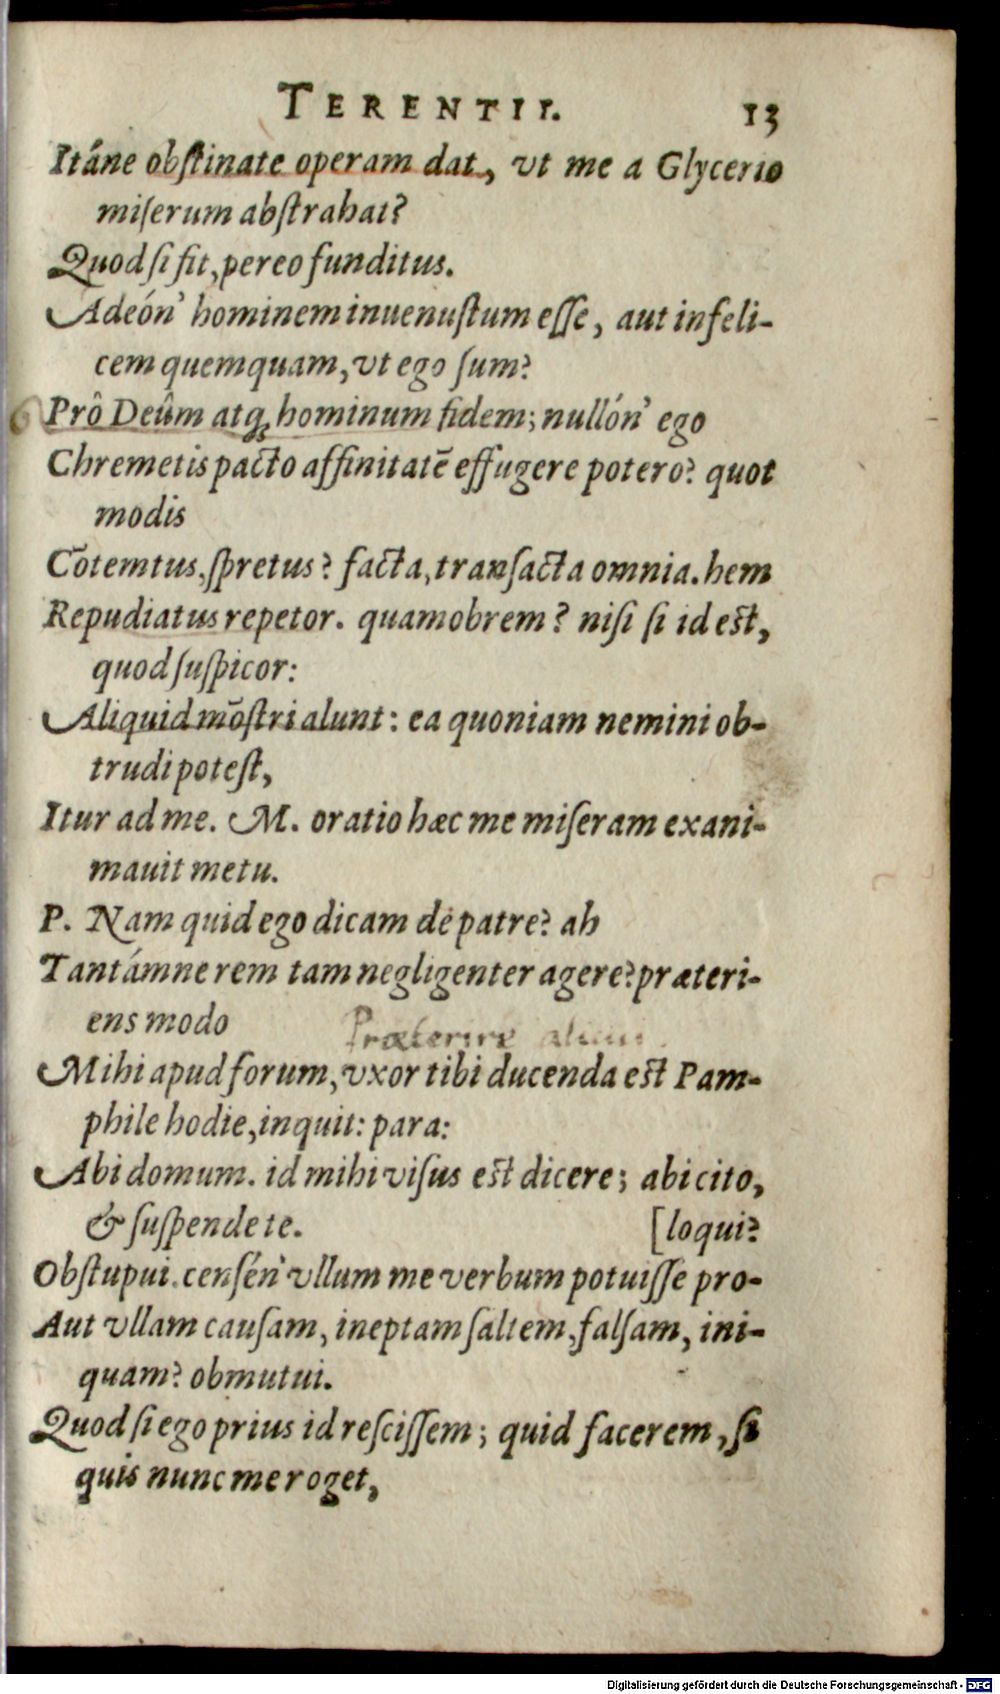 TERENTII. 13
Itáne obstinate operam dat, vt me a Glycerio
miserum abstrahat?
Quod si fit, pereo funditus.
Adeón' hominem inuenustum esse, aut infeli-
cem quemquam, vt ego sum?
Prô Deûm atq; hominum fidem; nullón' ego
Chremetis pacto affinitatẽ effugere potero? quot
modis
Cõtemtus, spretus? facta, transacta omnia. hem
Repudiatus repetor. quamobrem? nisi si id est,
quod suspicor:
Aliquid mõstri alunt: ea quoniam nemini ob-
trudi potest,
Itur ad me. M. oratio hæc me miseram exani-
mauit metu.
P. Nam quid ego dicam de patre? ah
Tantámne rem tam negligenter agere? præteri-
ens modo
Præterire
Mihi apud forum, vxor tibi ducenda est Pam-
phile hodie, inquit: para:
Abi domum. id mihi visus est dicere; abi cito,
& suspende te. [loqui?
Obstupui. censén' vllum me verbum potuisse pro-
Aut vllam causam, ineptam saltem, falsam, ini-
quam? obmutui.
Quod si ego prius id rescissem; quid facerem, si
quis nunc me roget,
Digitalisierung gefördert durch die Deutsche Forschungsgemeinschaft - DFG